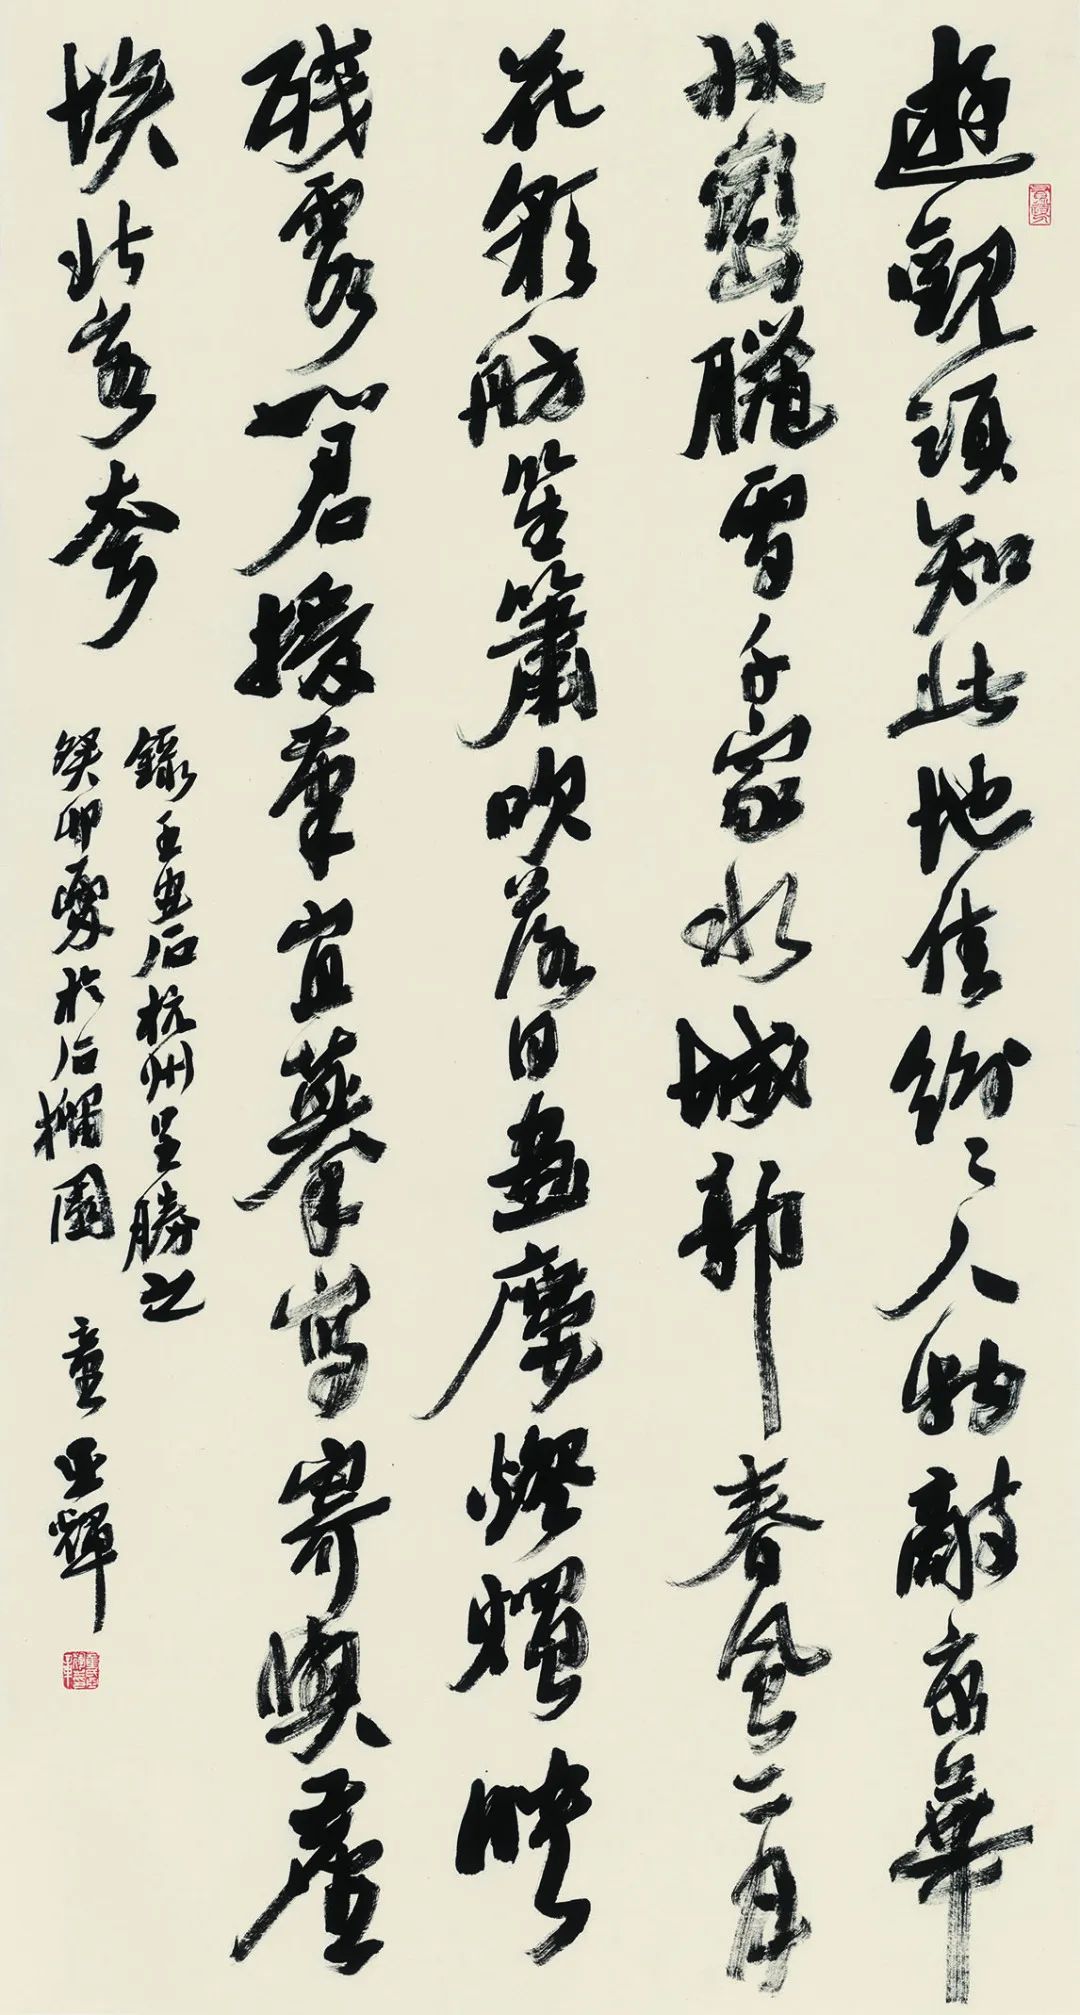 遊觀須知此地佳紛〻人物敵京華
林巒臘雪千家水城郭春風二月
花彩舫笙簫吹落日畫樓燈燭映
殘霞如君援筆宜摹寫寄與塵
埃北客夸
錄王安石杭州呈勝之
癸卯於石園 童亞輝